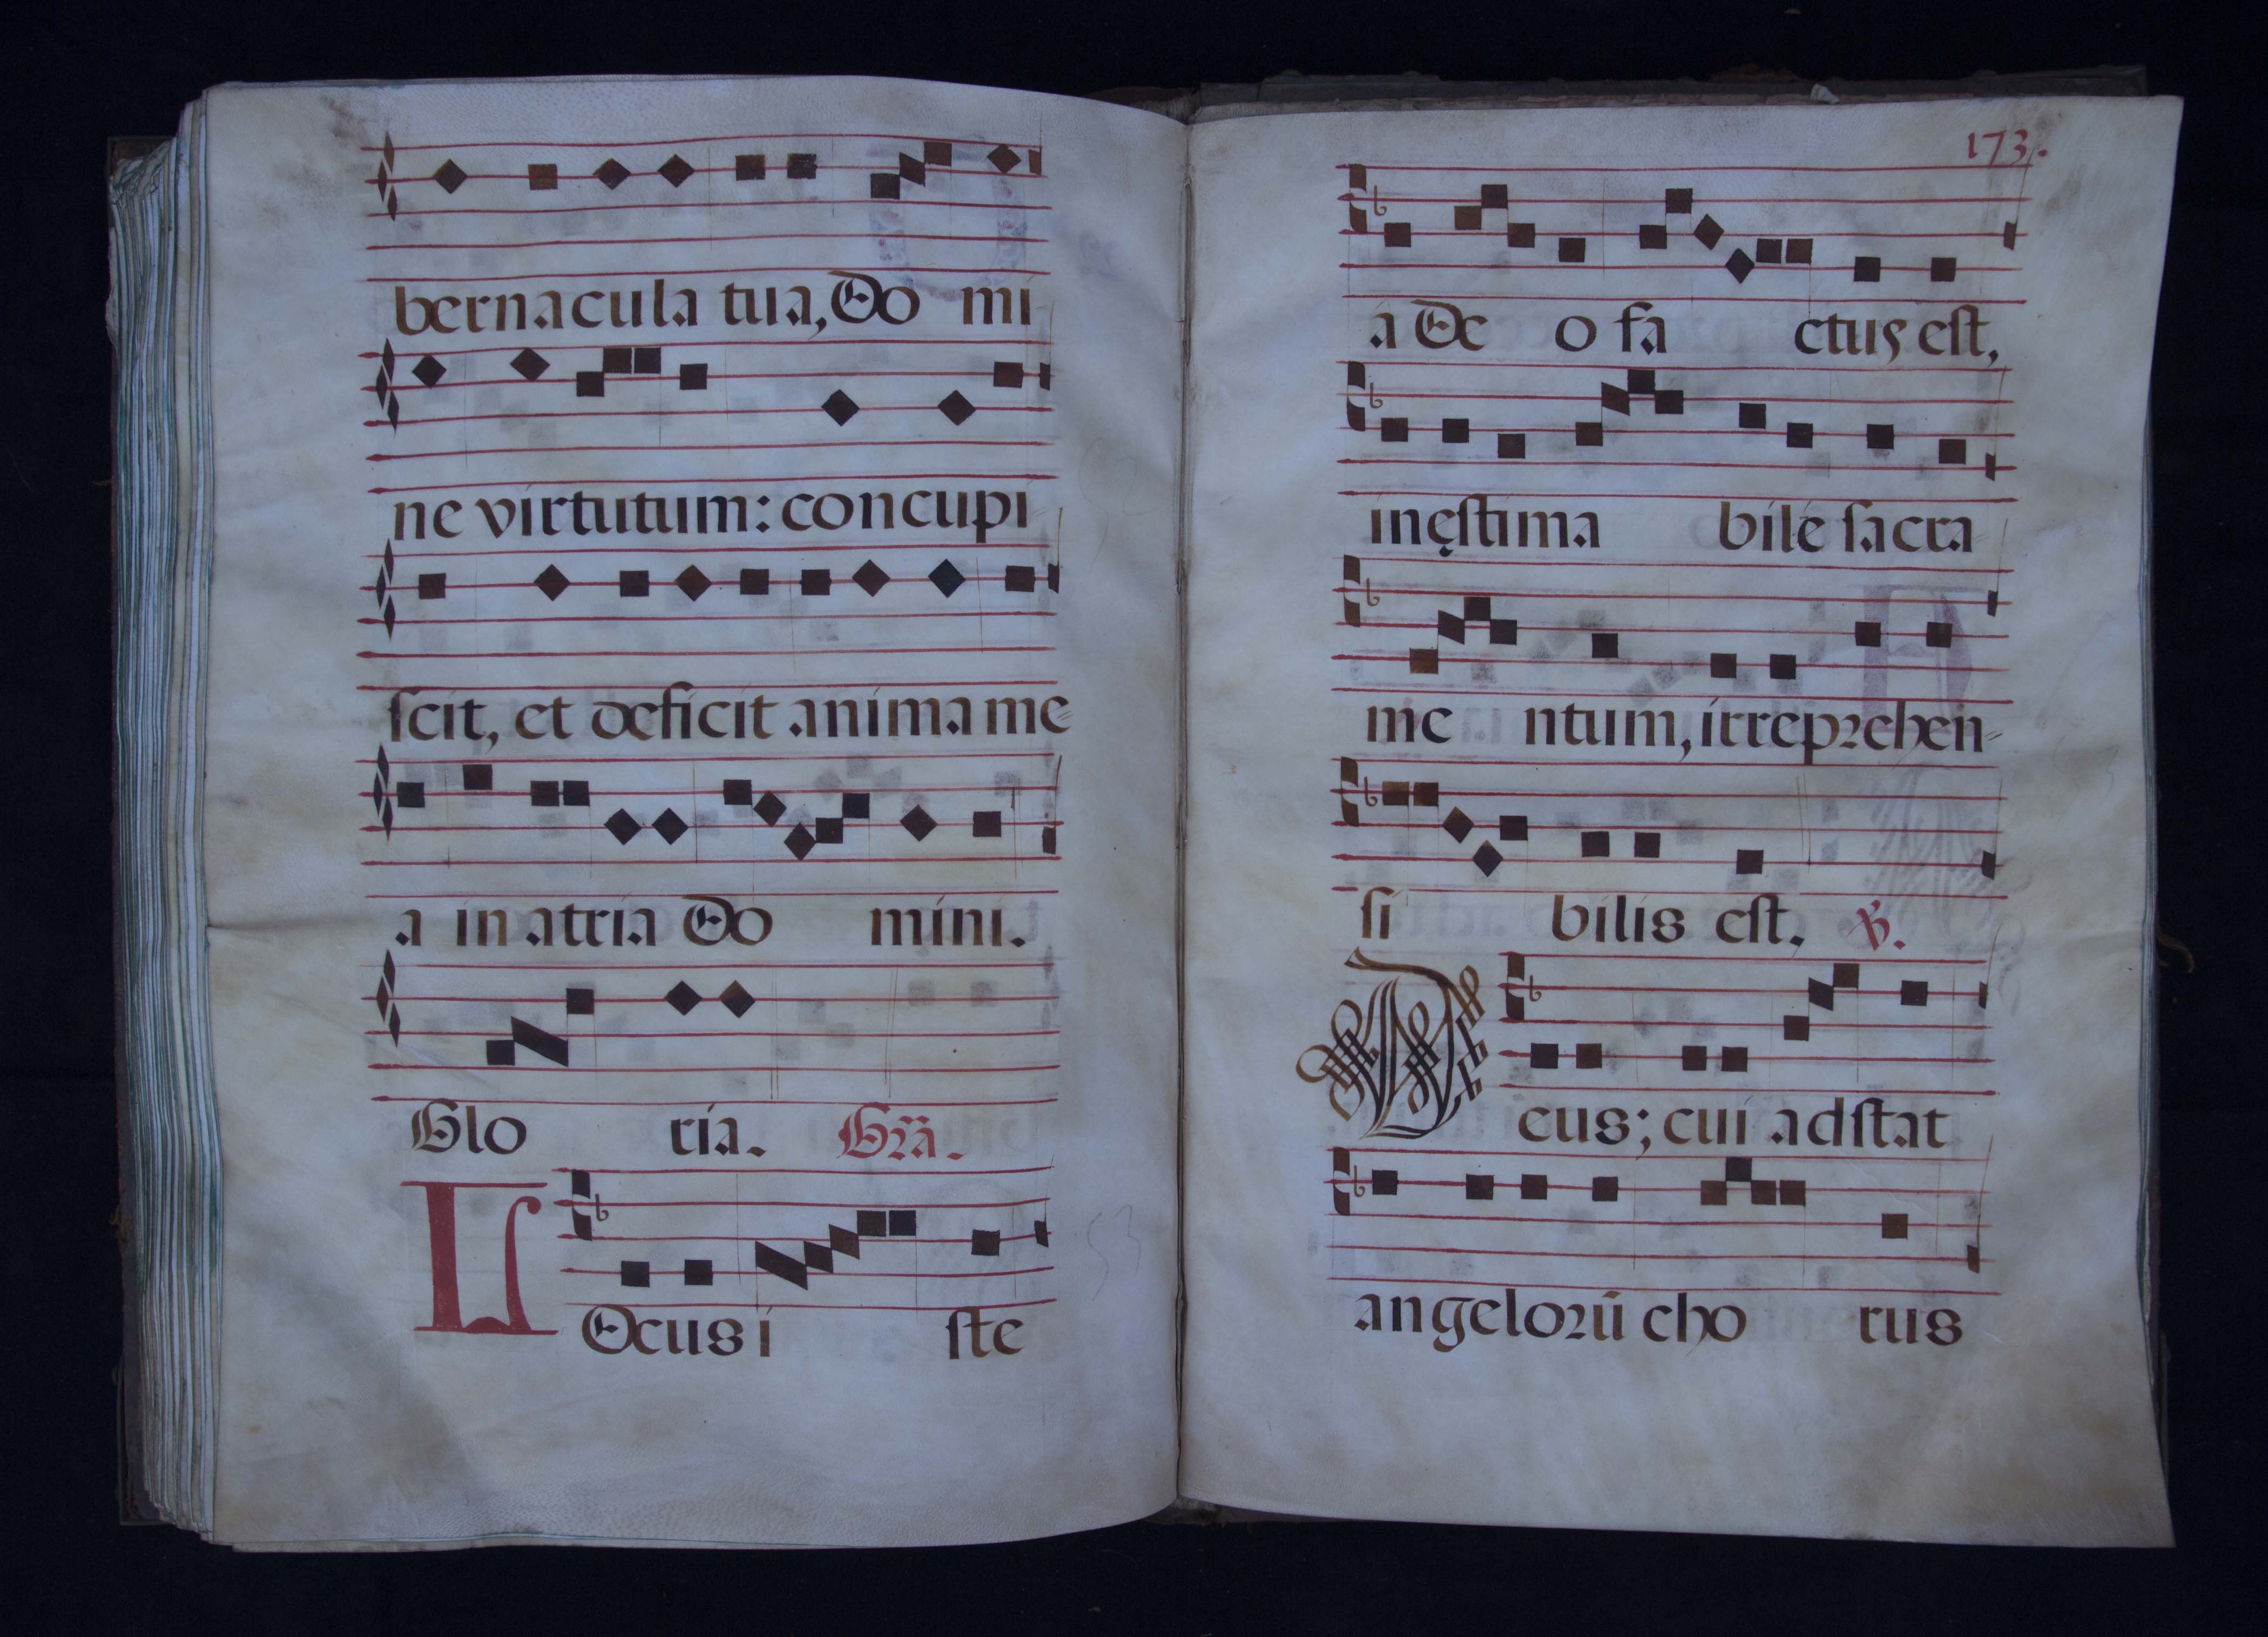 bernacula tua, Do mi
ne virtutum: concupi
scit, et deficit anima me
a in atria Do mini.
Glo ria. Gra͂.
LOcus i ste
173.
a De o fa ctus est,
inęstima bile sacra
me ntum, irreprehen
si bilis est. ℣.
Deus; cui adstat
angelorū cho rus